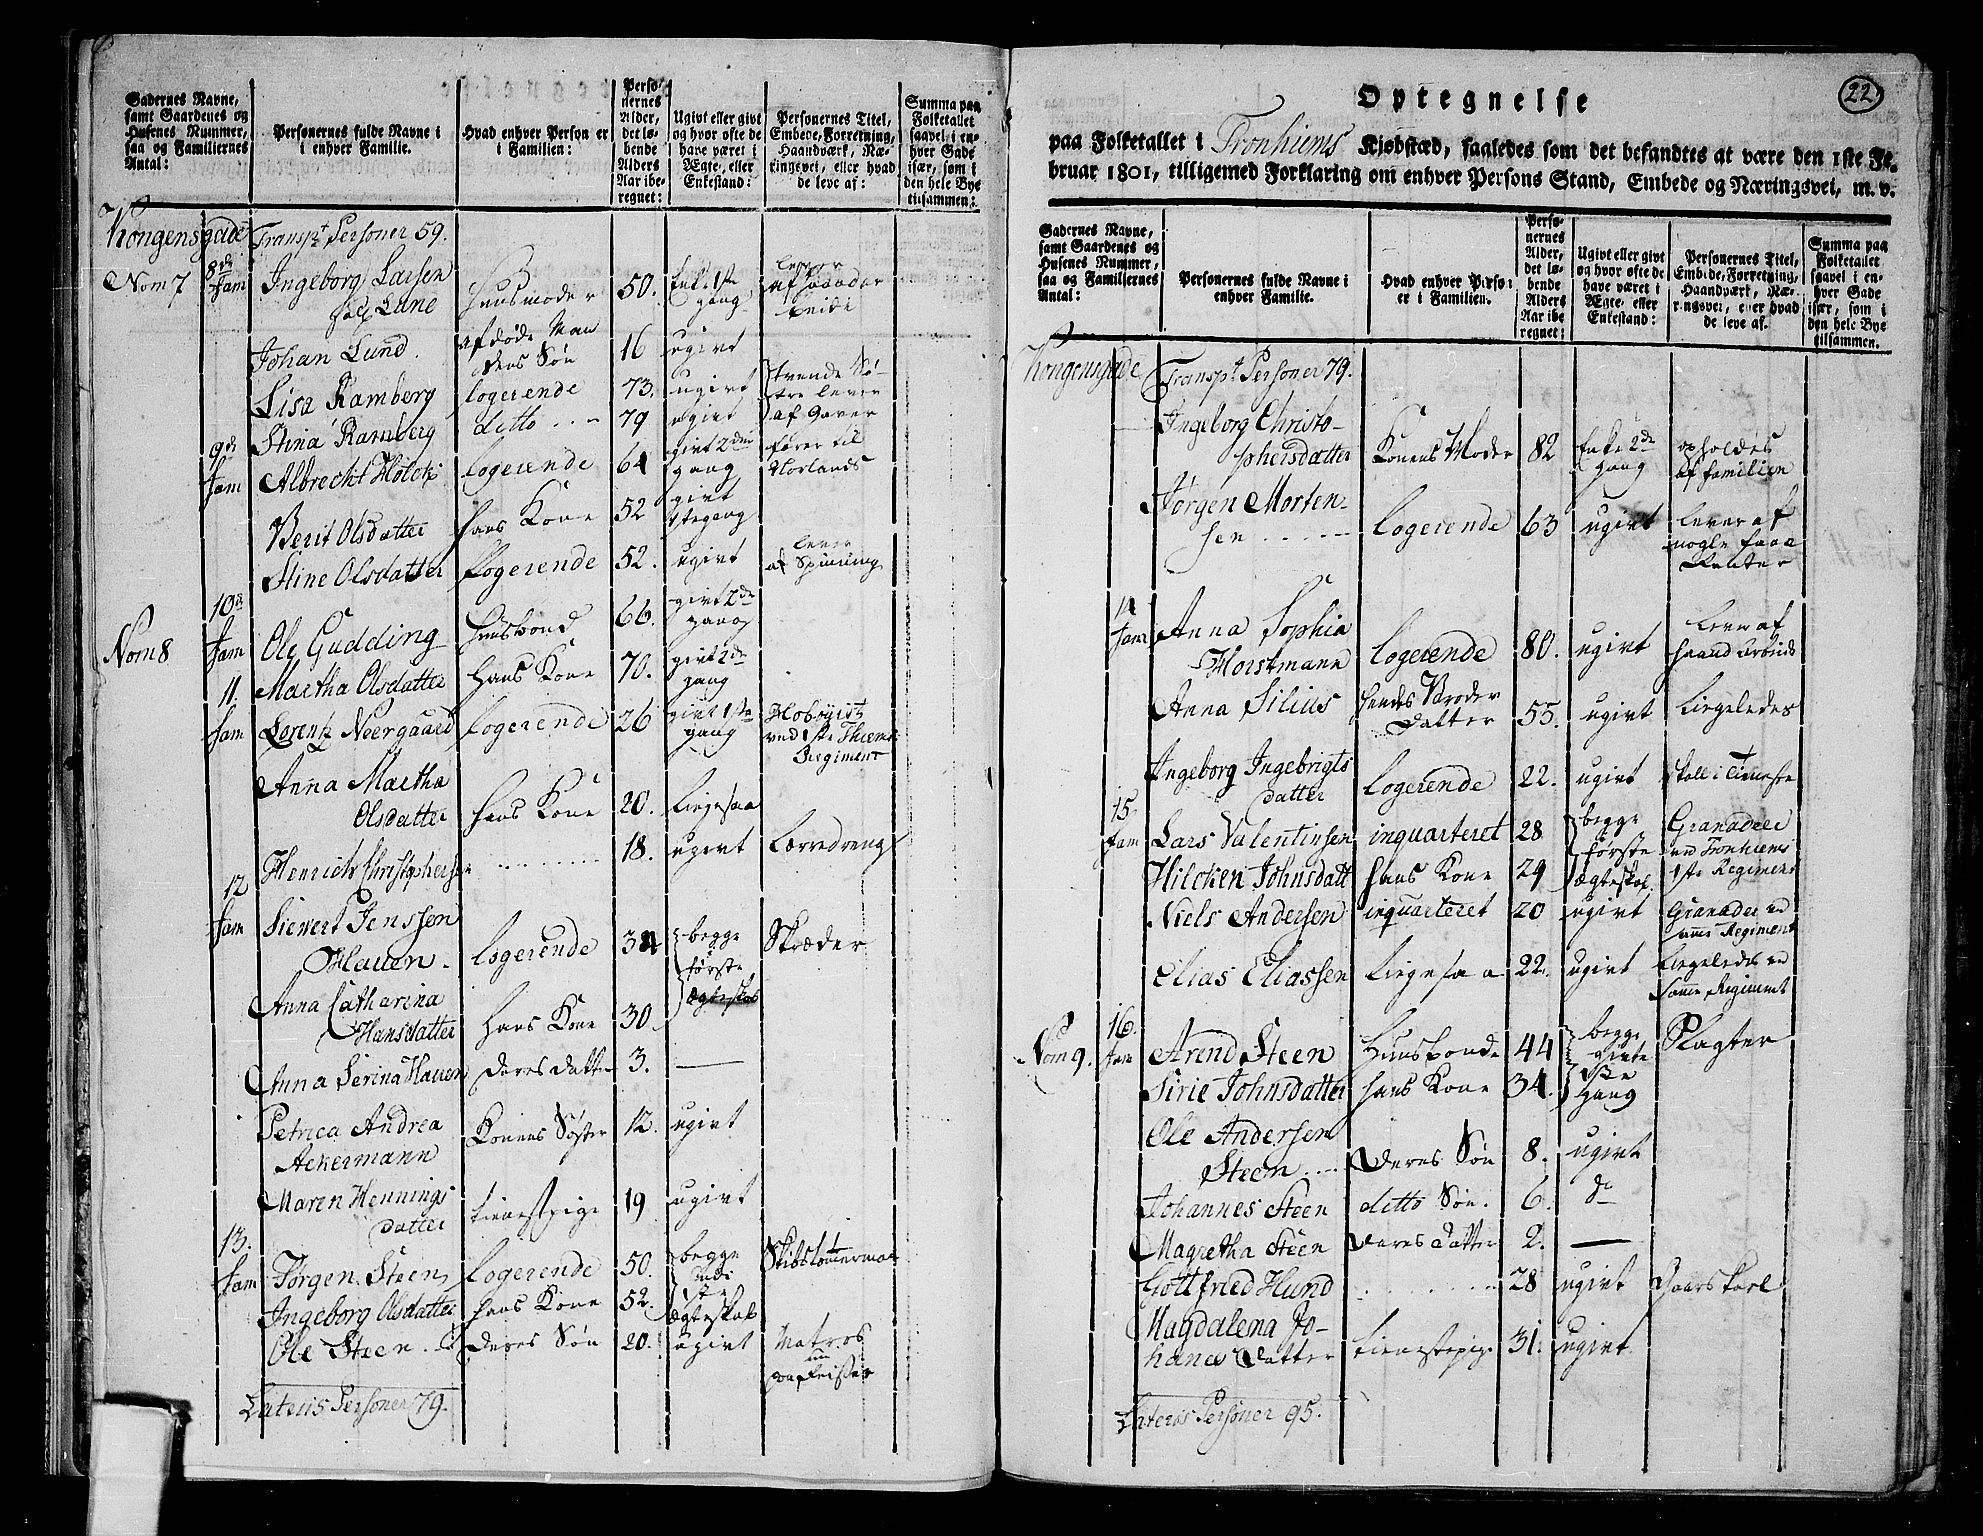 Gadernes Navne, samt Gaardenes og Husenes Nummer, saa og Familiernes Antal:
Personernes fulde Navne i enhver Familie.
Hvad enhver Person er i Familien:
Personernes Alder, det løbende Alders Aar iberegnet:
Ugivt eller givt og hvor ofte de have været i Ægte- eller Enkestand:
Personernes Titel, Embede, Forretning, Haandværk, Næringsvei, eller hvad de leve af:
Summa paa Folketallet saavel i enhver Gade især, som i den hele Bye tilsammen:
Kongensgade Transpt Personer 59.
Nom 7 8de Fam Ingeborg Larsen sal Lunds Huusmoder 50. Enke 1ste gang lever af haandarbeide
Johan Lund. afdøde Mandens Søn 16 ugivt
Lisa Ramberg logerende 73. ugivt trende Søstre lever
Stina Ramberg ditto 79 ugivt af Gaver
9de Fam Albrecht Holck logerende 64 givt 2den gang fører til Norlands
Berit Olsdatter hans Kone 52 givt 1te gang
Stine Olsdatter logerende 52. ugivt lever af Spinning
Nom 8 10de Fam Ole Gudding Huusbond 66. givt 2de gang
Martha Olsdatter hans Kone 70. givt 2de gang
11. Fam Lorentz Neergaard logerende 26 givt 1ste gang Hoboyist ved 1ste Thiems Regiment
Anna Martha Olsdatter hans Kone 20. ligesaa
Henrich Christophersen 18. ugivt Læredreng
12 Fam Siewert Jenssen Hauen. logerende 34 begge første Ægteskab Skræder
Anna Catharina Hansdatter hans Kone 30
Anna Serina Hauen deres datter 3. —
Petrica Andrea Ackermann Konens Søster 12. ugivt
Maren Hennings datter tienestpige 19 ugivt
13. Fam Jørgen Steen logerende 50. begge udi 1ste Ægteskab Skibstømmerman
Ingeborg Olsdatter hans Kone 52.
Ole Steen. deres Søn 20. ugivt Matros
Lateris Personer 79.
22
Optegnelse
paa Folketallet i Tronhiems Kiøbstæd, saaledes som det befandtes at være den 1ste Fe-
bruar 1801, tilligemed Forklaring om enhver Persons Stand, Embede og Næringsvei, m. v.
Gadernes Navne, samt Gaardenes og Husenes Nummer, saa og Familiernes Antal:
Personernes fulde Navne i enhver Familie.
Hvad enhver Person er i Familien.
Personernes Alder, det løbende Alders Aar iberegnet:
Ugivt eller givt og hvor ofte de have været i Ægte- eller Enkestand:
Personernes Titel, Embede, Forretning, Haandværk, Næringsvei, eller hvad de leve af.
Summa paa Folketallet saavel i enhver Gade især, som i den hele Bye tilsammen.
Kongensgade Transpt Personer 79.
Ingeborg Christophersdatter Konens Moder 82 Enke 2de gang opholdes af familien
Jørgen Mortensen logerende 63 ugivt lever af nogle faae Renter
14 Fam Anna Sophia Horstmann logerende 80. ugivt lever af haand Arbeide
Anna Silius hendes Broder Datter 55. ugivt Ligeledes
Ingeborg Ingebrigts datter logerende 22. ugivt skall i Tieneste
15. Fam Lars Valentinsen inquarteret 28 begge første Ægteskab Granadeer ved Tronhiems 1ste Regiment
Hilcken Johnsdatt hans Kone 29
Niels Andersen inquarteret 20 ugivt Granadeer ved samme Regiment
Elias Eliassen Ligesaa 22. ugivt Ligeledes ved samme Regiment
Nom 9. 16. Fam Arend Steen Huusbonde 44 begge givte 1ste Gang Slagter
Sirie Johnsdatter hans Kone 34.
Ole Andersen Steen deres Søn 8. ugivt
Johannes Steen ditto Søn. 6. do
Magretha Steen deres datter 2. —
Gottfried Hund 28 ugivt Gaarskarl
Magdalena Johanes Datter tienestepige 31. ugivt.
Lateris Personer 95.